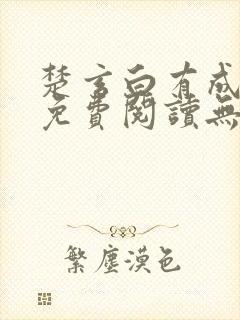 楚言白有成
免費閱讀無
繁塵漠色